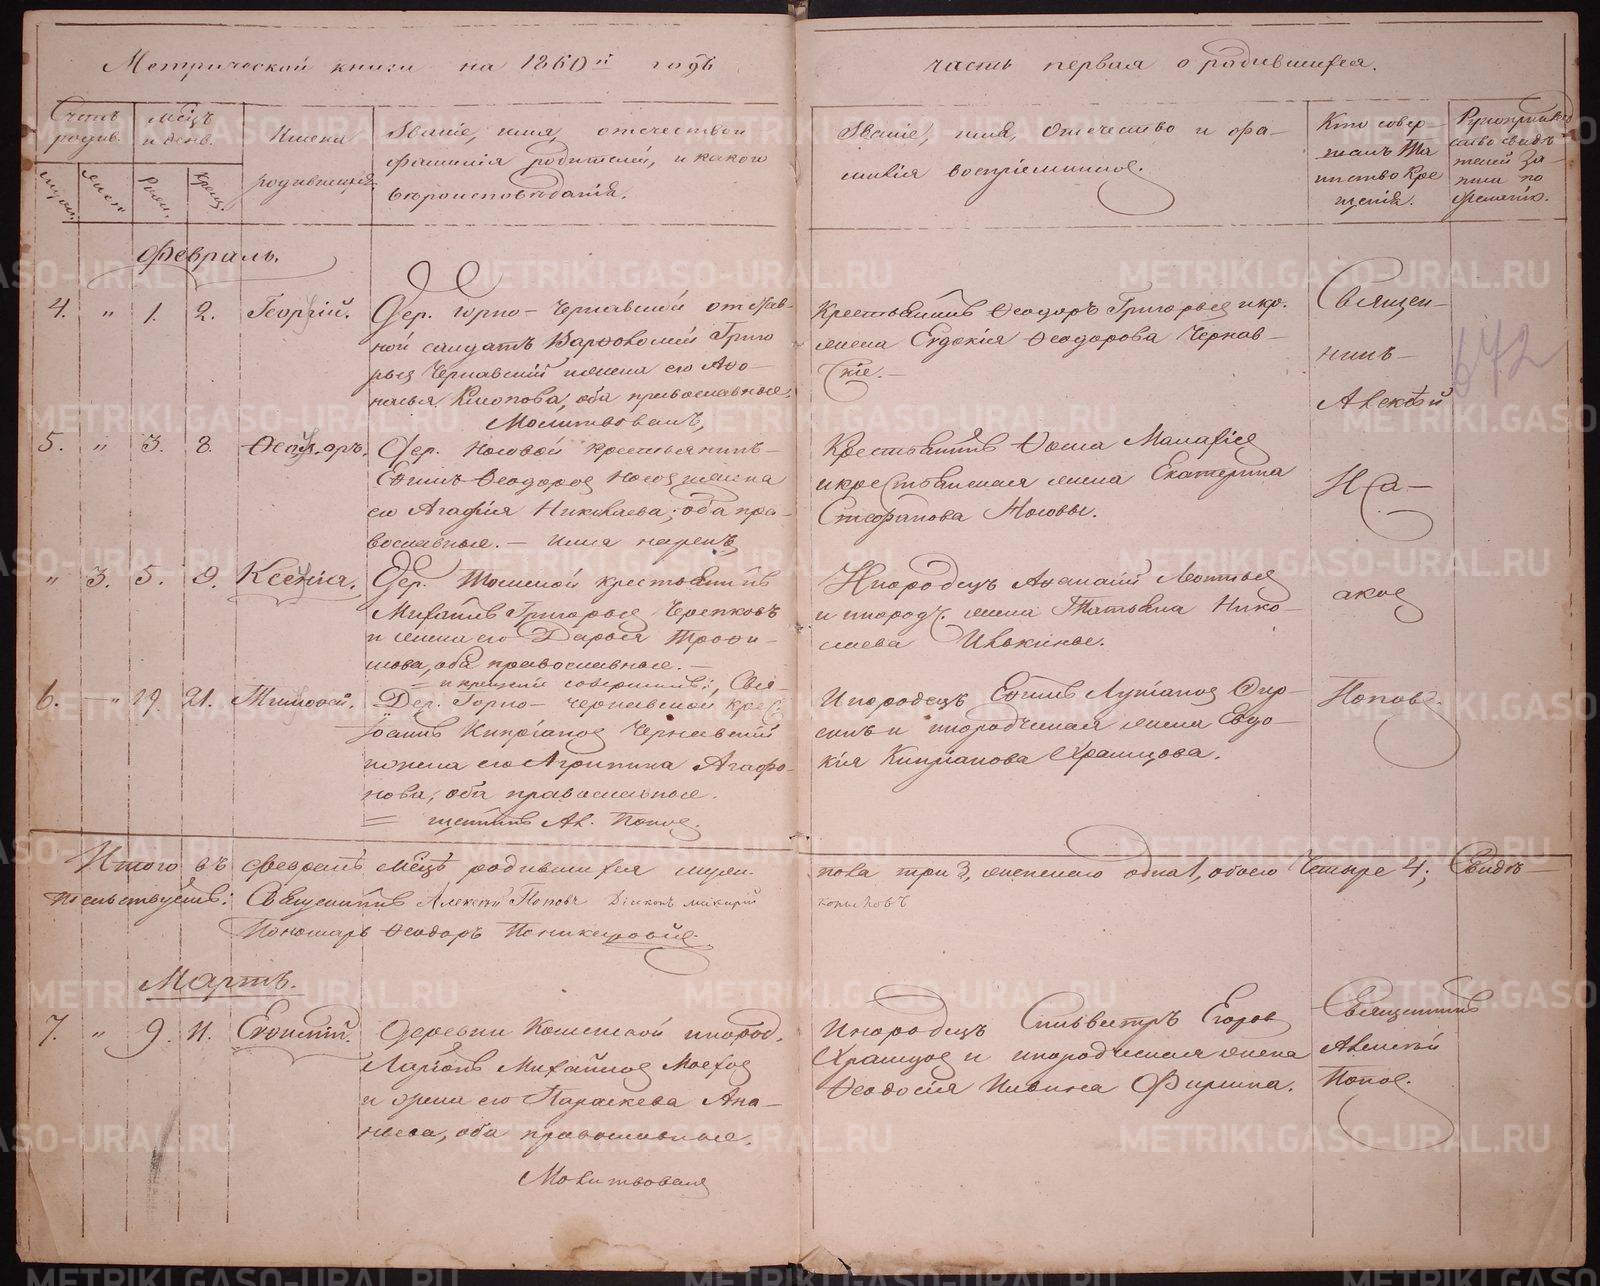 Метрической книги на 1860й годъ
часть первая о родившихся.
Счетъ родив.
мѣсцъ и день.
Имена родившихся.
Званіе, имя, отечество и фамилія родителей, и какого вѣроисповѣданія.
Званіе, имя, отечество и фамилія воспріемниковъ.
Кто совершалъ Таинство Крещенія.
Рукоприкладство свидѣтелей записи по желанію.
мужск.
женск.
Рожд.
Крещ.
Февраль.
4. " 1. 2. Георгій.
Дер. Горно-Чернавской отстав-
ной солдатъ Варѳоломей Григо
рьев Чернавскій и жена его Аѳо-
насья Климова, оба православные,
Молитвовалъ,
Крестьянинъ Ѳеодоръ Григорьев и кр.
жена Евдокія Ѳеодорова Чернав-
скіе.-
Священ-
никъ-
Алексѣй
672
5. " 3. 8. Ѳеодоръ.
Дер. Носовой крестьянинъ-
Ефимъ Ѳеодоров Носов и жена
его Агафія Николаева; оба пра-
вославные. - имя нарекъ
Крестьянинъ Ѳома
и крестьянская жена Екатерина
Стефанова Носовы.
Иса-
" 3. 5. 9. Ксенія.
Дер. крестьянинъ
Михаилъ Григорьев Черепковъ
и жена его Дарья Трофи-
мова, оба православные. -
= и крещеніе совершилъ:, Свя-
Инородецъ Ананій Леонтьев
и инород. жена Татьяна Нико-
лаева Ивкины.
аков
6. - " 19. 21. Тимоѳей.
Дер. Горно-чернавской крес.
Іоаннъ Кипріанов Чернавскій
и жена его Агрипина Агафо-
нова; оба православные.
= щенникъ Ал. Попов.
Инородецъ Ефимъ Лукіанов Фир-
синъ и инородческая жена Евдо-
кія Кипріанова Храмцова.
Попов.
Итого въ февралѣ мѣсцѣ родившихся муж.
пола три 3, женскаго одна 1, обоего Четыре 4; Свидѣ-
тельствуютъ: Священникъ Алексѣй Поповъ Діаконъ макарій
Пономарь Ѳеодоръ
Мартъ.
7. " 9. 11. Евфимій.
Деревни Кошенской инород.
Ларіонъ Михайлов
и жена его Параскева Ана-
ньева, оба православные.
Молитвовалъ
Инородецъ Сильвестръ Егоров
Храмцов и инородческая жена
Ѳеодосія Фирсина.
Священникъ
Алексѣй
Попов.